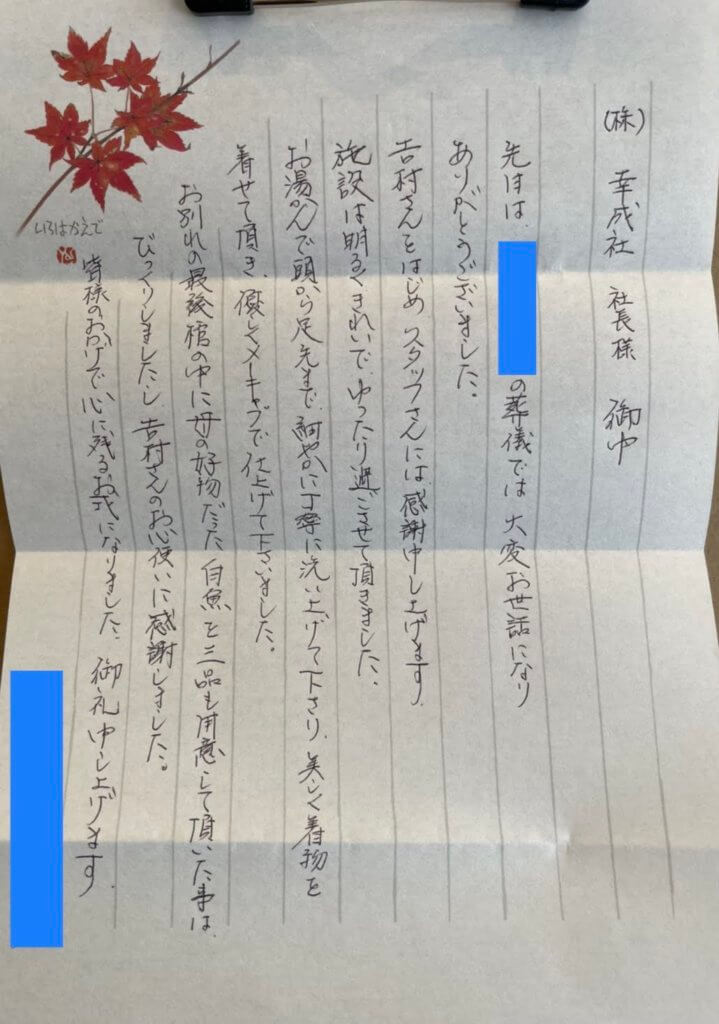 (株) 幸成社 社長様 御中
先日は、
の葬儀では大変お世話になり
ありがとうございました。
吉村さんをはじめ、スタッフさんには、感謝申し上げます。
施設は明るくきれいで、ゆったり過ごさせて頂きました。
お湯かんで頭から足先まで、細やかに丁寧に洗い上げて下さり、美しく着物を
着せて頂き、優しくメーキャップで仕上げて下さいました。
お別れの最後棺の中に母の好物だった白魚を三品も用意して頂いた事は、
びっくりしましたし吉村さんのお心使いに感謝しました。
皆様のおかげで心に残るお式になりました。御礼申し上げます。
いろはかえで